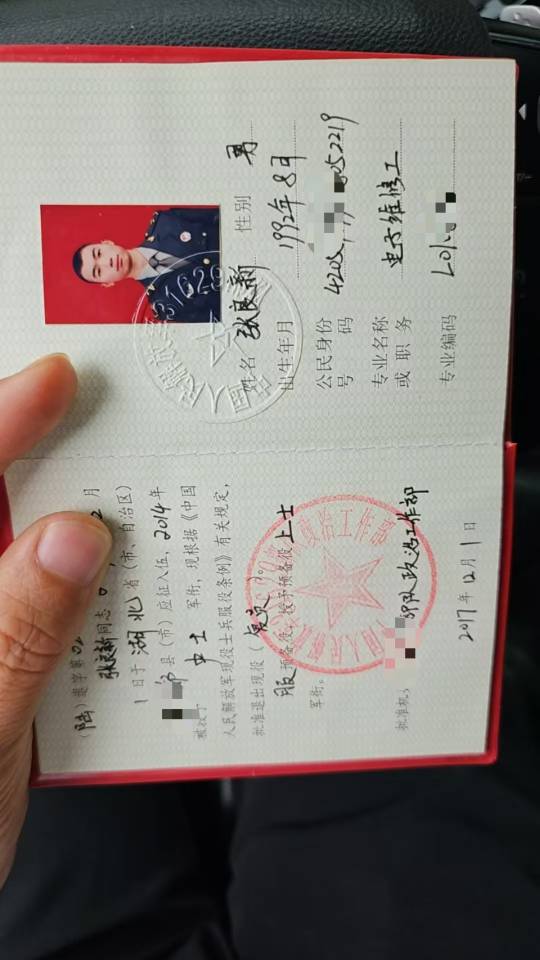 姓名 张良新 性别 男
出生年月 1992年8月
公民身份号码
专业名称或职务 电子维修工
专业编码
(陆)退字第02
张良新同志
月
1日于湖北省(市、自治区)
市县(市)应征入伍,2014年
被授予 中士 军衔,现根据《中国
人民解放军现役士兵服役条例》有关规定,
批准退出现役(
服预备役,授予预备役上士
军衔。
批准机关
部队政治工作部
2017年12月1日